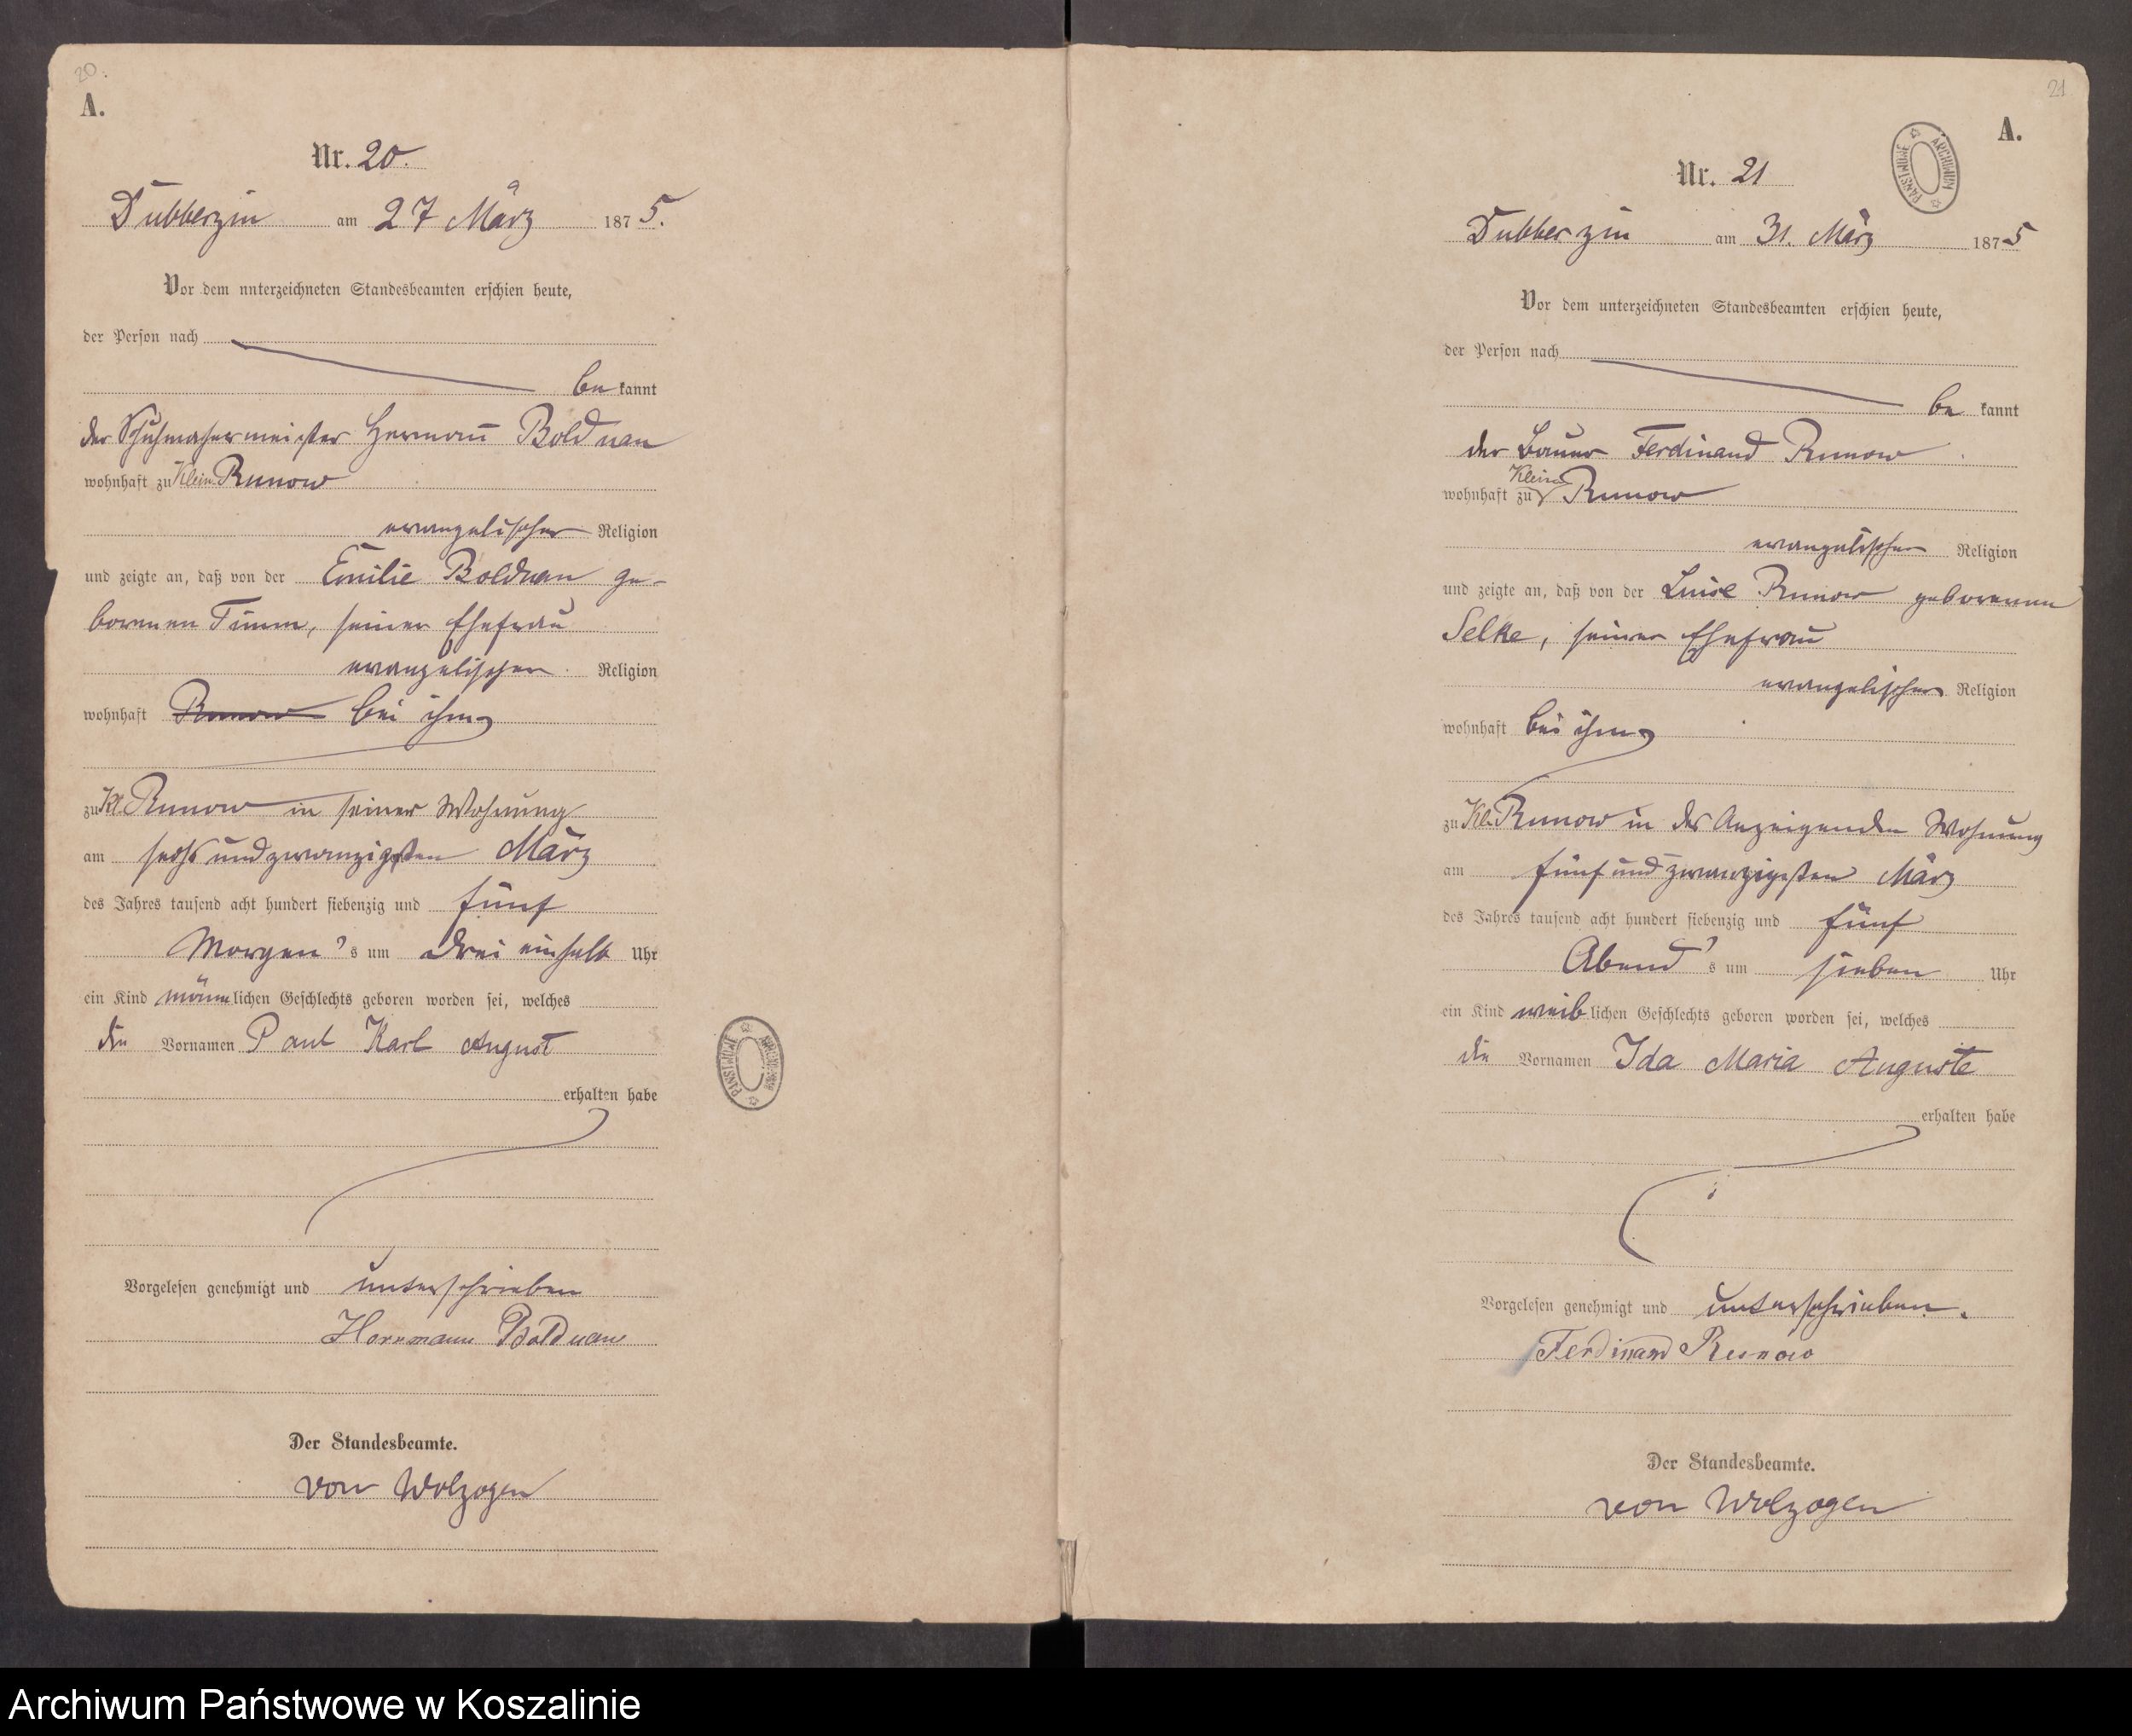 20.
A.
Nr. 20.
Dubberzin am 27 März 1875.
Vor dem unterzeichneten Standesbeamten erschien heute,
der Person nach
be kannt
der Schuhmachermeister Hermann Bolduan
wohnhaft zu Klein Runow
evangelischer Religion
und zeigte an, daß von der Emilie Bolduan ge-
borenen Timm, seiner Ehefrau
evangelischer Religion
wohnhaft Runow bei ihm
zu Kl. Runow in seiner Wohnung
am sechsundzwanzigsten März
des Jahres tausend acht hundert siebenzig und fünf
Morgen's um drei einhalb Uhr
ein Kind männlichen Geschlechts geboren worden sei, welches
die Vornamen Paul Karl August
erhalten habe
Vorgelesen genehmigt und unterschrieben
Herrmann Bolduan
Der Standesbeamte.
von Wolzogen
ARCHIWUM PAŃSTWOWE
21
A.
ARCHIWUM PAŃSTWOWE
Nr. 21
Dubberzin am 31. März 1875
Vor dem unterzeichneten Standesbeamten erschien heute,
der Person nach
be kannt
der Bauer Ferdinand Runow
wohnhaft zu Klein Runow
evangelischer Religion
und zeigte an, daß von der Luise Runow geborenen
Selke, seiner Ehefrau
evangelischer Religion
wohnhaft bei ihm
zu Kl. Runow in des Anzeigenden Wohnung
am fünfundzwanzigsten März
des Jahres tausend acht hundert siebenzig und fünf
Abend's um sieben Uhr
ein Kind weiblichen Geschlechts geboren worden sei, welches
die Vornamen Ida Maria Auguste
erhalten habe
Vorgelesen genehmigt und unterschrieben.
Ferdinand Runow
Der Standesbeamte.
von Wolzogen
Archiwum Państwowe w Koszalinie